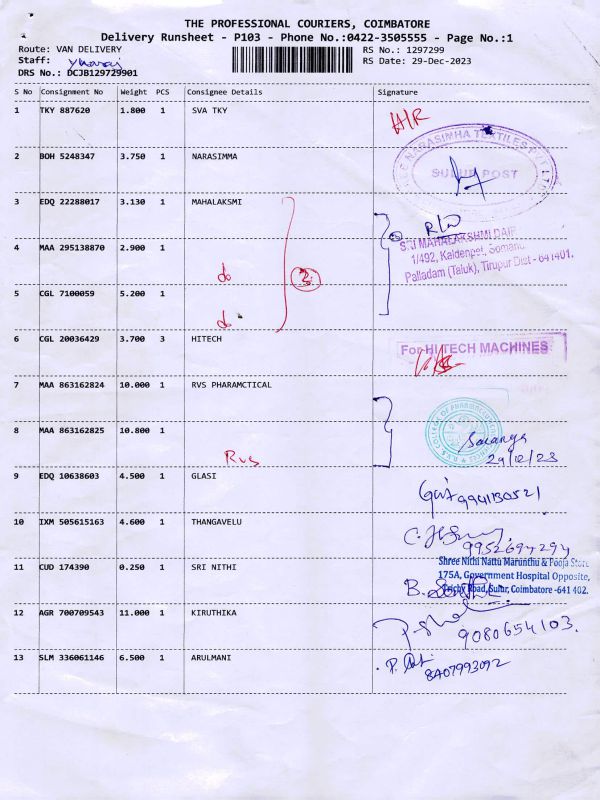 THE PROFESSIONAL COURIERS, COIMBATORE
Delivery Runsheet - P103 - Phone No.:0422-3505555 - Page No.:1
Route: VAN DELIVERY
RS No.: 1297299
Staff:
RS Date: 29-Dec-2023
DRS No.: DCJB129729901
S No Consignment No Weight PCS Consignee Details Signature
1 TKY 887620 1.800 1 SVA TKY
H/R
2 BOH 5248347 3.750 1 NARASIMMA
NARASIMHA TEXTILES PVT LTD
SULUR POST
3 EDQ 22288017 3.130 1 MAHALAKSMI
SRI MAHALAKSHMI DAIR
4 MAA 295138870 2.900 1
1/492, Kaldenpet, Somanu
Palladam (Taluk), Tirupur Dist - 641401.
do
3
5 CGL 7100059 5.200 1
do
6 CGL 20036429 3.700 3 HITECH
For HI-TECH MACHINES
7 MAA 863162824 10.000 1 RVS PHARAMCTICAL
8 MAA 863162825 10.800 1
Rvs
R.V.S. COLLEGE OF PHARMACEUTICAL
Saranya
29/12/23
9 EDQ 10638603 4.500 1 GLASI
9941130521
10 IXM 505615163 4.600 1 THANGAVELU
9952694294
11 CUD 174390 0.250 1 SRI NITHI
Shree Nithi Nattu Marunthu & Pooja Store
175A, Government Hospital Opposite,
Trichy Road, Sulur, Coimbatore -641 402.
12 AGR 700709543 11.000 1 KIRUTHIKA
9080654103.
13 SLM 336061146 6.500 1 ARULMANI
8407993092